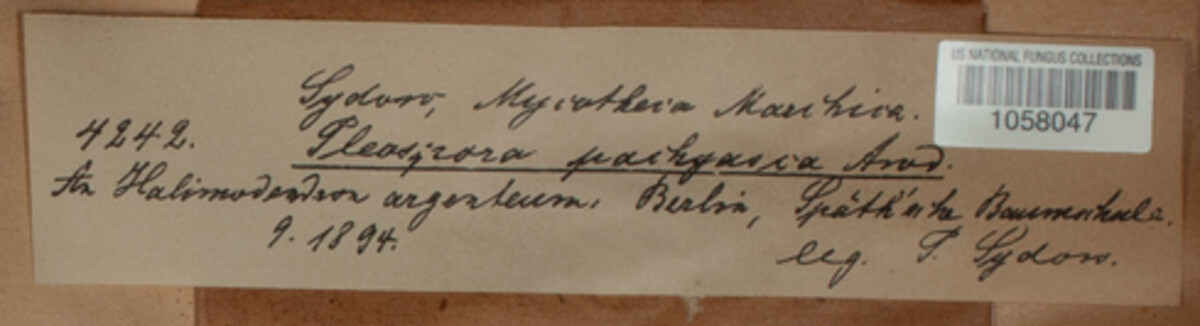 US NATIONAL FUNGUS COLLECTIONS
1058047
Sydow, Mycotheca Marchica.
4242. Pleospora pachyasca Awd.
An Halimodendron argenteum. Berlin, Späth'sche Baumschule.
9. 1894.
leg. P. Sydow.